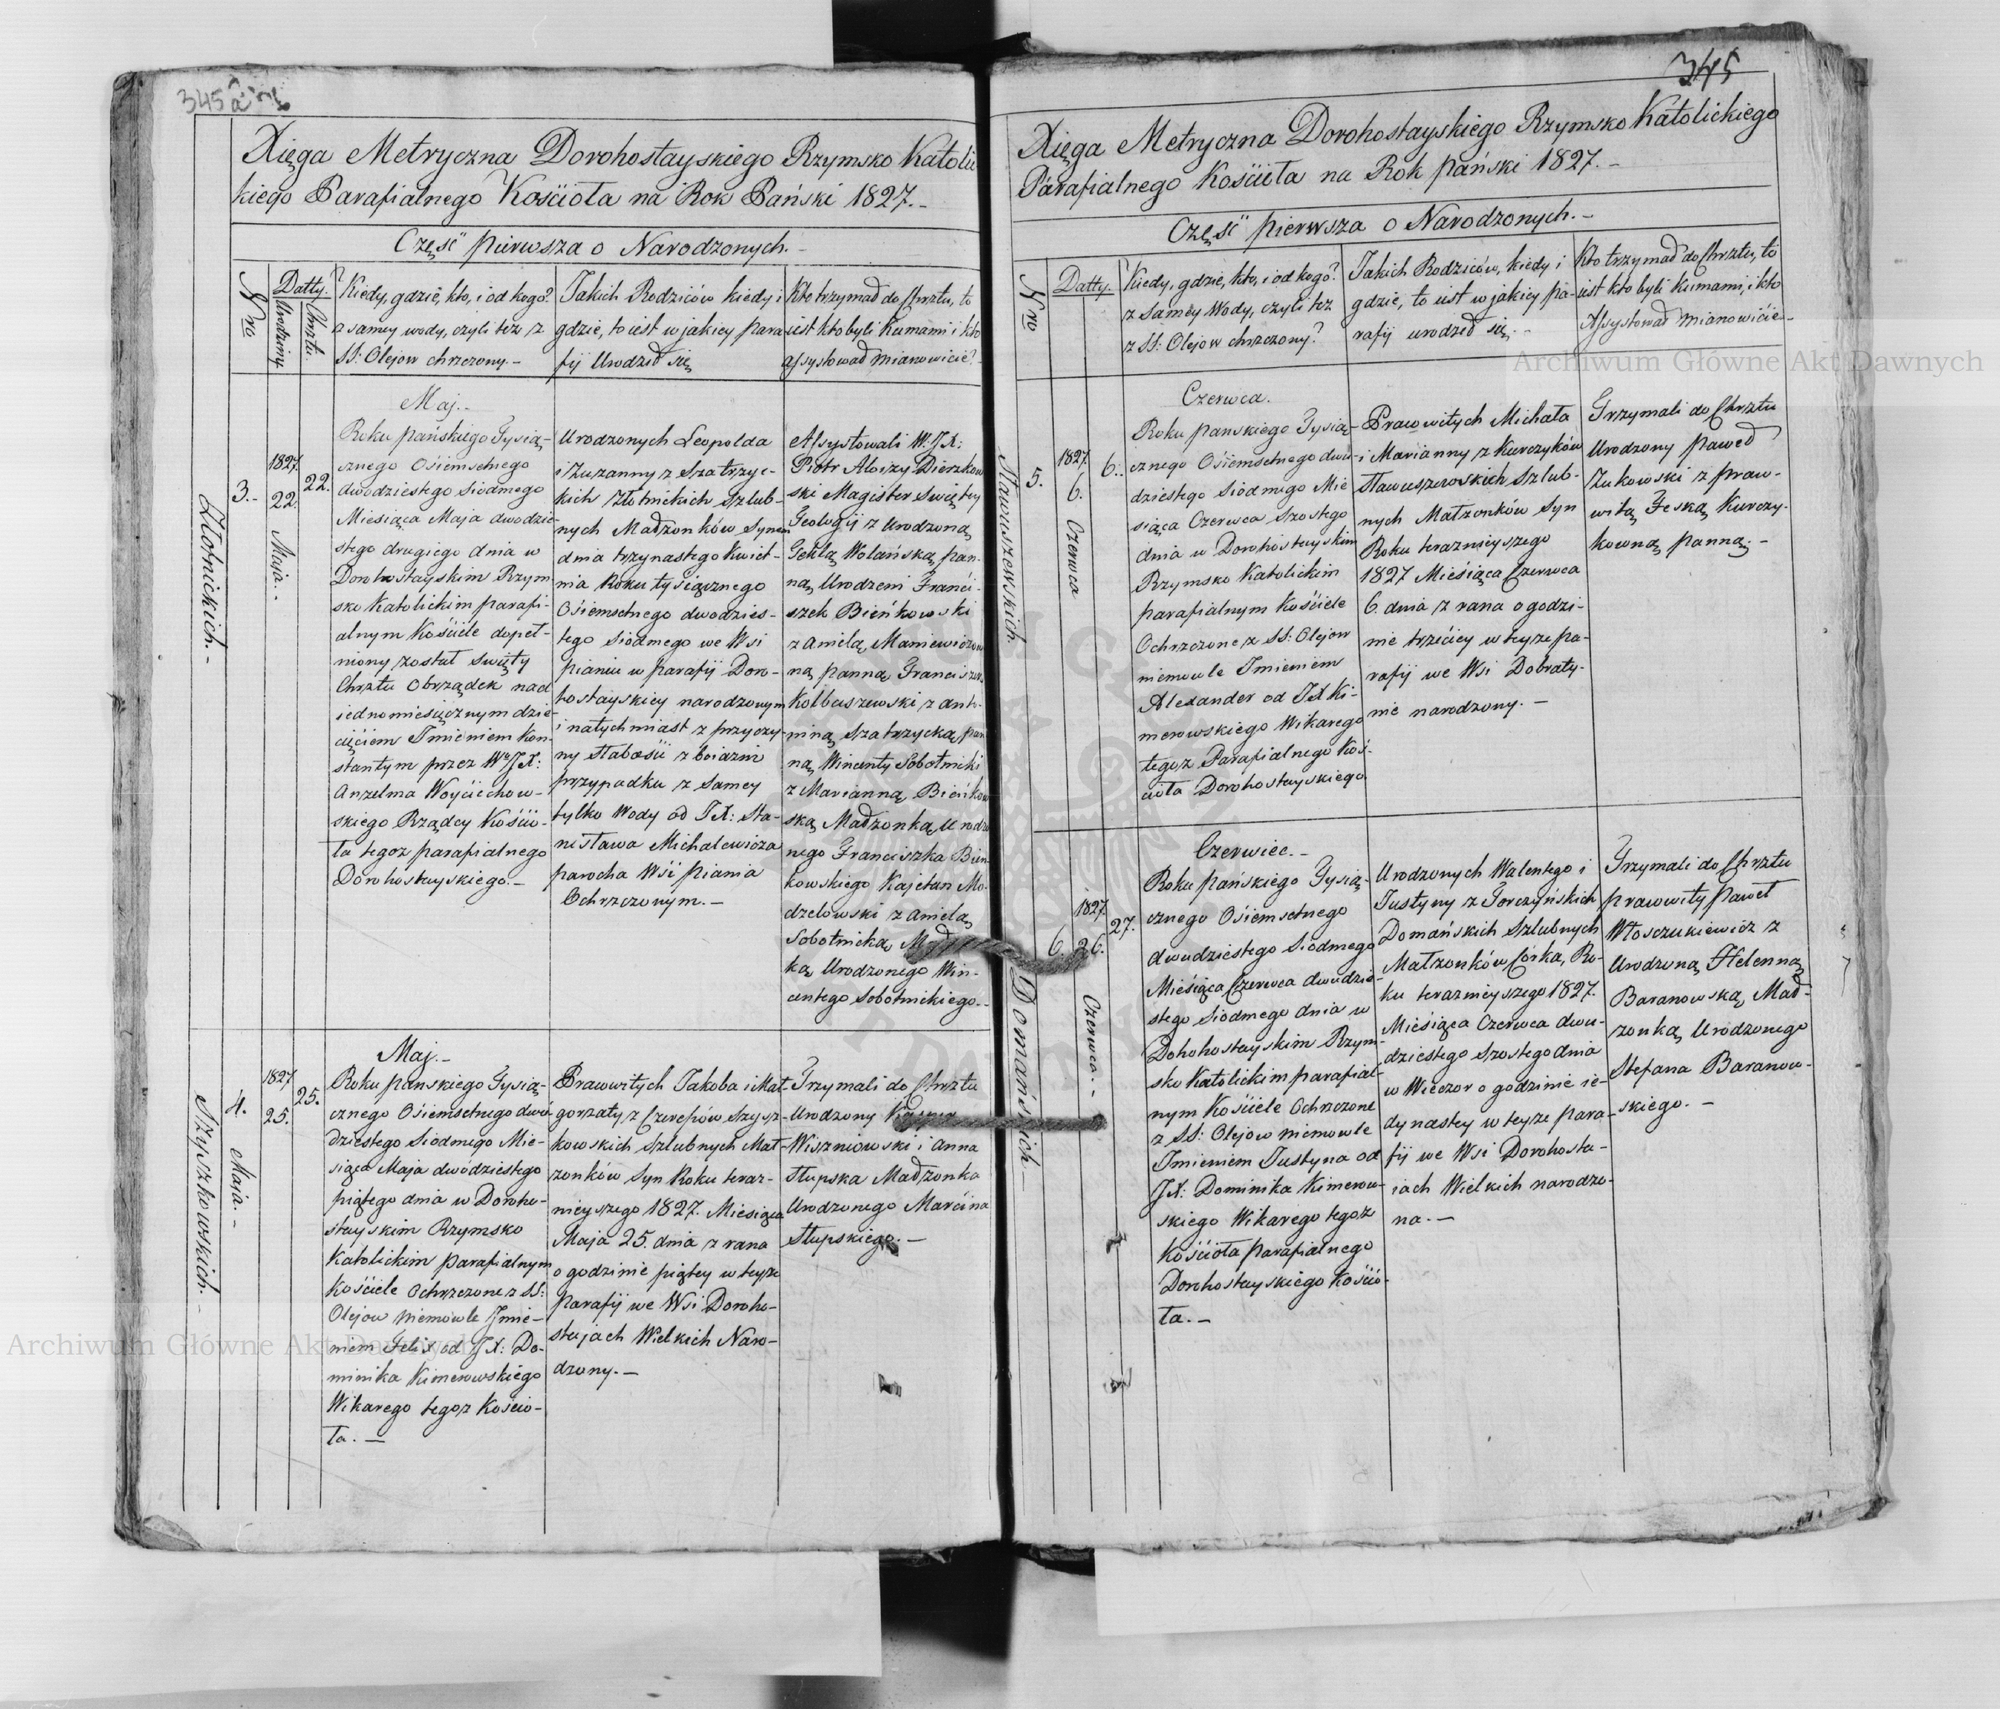 345 a
Xięga Metryczna Dorohostayskiego Rzymsko Katolic
kiego Parafialnego Kościoła na Rok Pański 1827.-
Część pierwsza o Narodzonych.-
Nro
Datty.
Urodziny
Chrztu.
Kiedy, gdzie, kto, i od kogo?
z samey wody, czyli też z
SS: Olejow chrzczony.-
Jakich Rodziców kiedy i
gdzie, to iest w jakiey para
fij Urodził się
Kto trzymał do Chrztu, to
iest kto byli Kumami i kto
assystował mianowicie?
Złotnickich.-
3.-
1827.
22. Maja.-
22.
Maj.-
Roku pańskiego Tysią-
cznego Ośiemsetnego
dwódziestego Siódmego
Miesiąca Maja dwódzie-
stego drugiego dnia w
Dorohostayskim Rzym
sko Katolickim parafi-
alnym Kościele dopeł-
niony został Swięty
Chrztu Obrządek nad
iednomiesięcznym dzie-
cięciem Imieniem Kon-
stantym przez WJX:
Anzelma Woyciechow-
skiego Rządcy Kościo-
ła tegoż parafialnego
Dorohostayskiego.-
Urodzonych Leopolda
i Zuzanny z Szatrzyc-
kich Złotnickich Szlub-
nych Małżonków Synem
dnia trzynastego Kwiet-
nia Roku tysiącznego
Ośiemsetnego dwodzies-
tego siódmego we Wsi
pianiu w parafij Doro-
hostayskiey narodzonym
i natychmiast z przyczy-
ny słabości z boiaźni
przypadku z samey
tylko Wody od JX: Sta-
nisława Michalewicza
parocha Wsi piania
Ochrzczonym.-
Assystowali W:JX:
Piotr Aloizy Dierzkow
ski Magister Swiętey
Teologij z Urodzoną
Teklą Wolańską, pan-
ną, Urodzeni Franci-
szek Bieńkowski
z Anielą, Maniewiczow
ną panną Franciszek
Kolbuszewski z Anto-
niną Szatrzycką, pan
ną, Wincenty Sobotnicki
z Marianną, Bieńkow
ską, Małżonką, Urodzo
nego Franciszka Bień
kowskiego Kajetan Mo-
dzelowski z Anielą
Sobotnicką, Małżon
ką Urodzonego Win-
centego Sobotnickiego.-
Szyszkowskich.-
4.
1827
25. Maja.-
25.
Maj.-
Roku pańskiego Tysią-
cznego Ośiemsetnego dwó
dziestego Siódmego Mie-
siąca Maja dwódziestego
piątego dnia w Doroho-
stayskim Rzymsko
Katolickim parafialnym
Kościele Ochrzczone z SS:
Olejow niemowle Imie-
niem Felix od JX: Do-
minika Kimerowskiego
Wikarego tegoż Kościo-
ła.-
Prawowitych Jakoba i Mał
gorzaty z Czerepów Szysz-
kowskich Szlubnych Mał-
żonków Syn Roku teraz-
nieyszego 1827. Miesiąca
Maja 25. dnia z rana
o godzinie piątey w teyże
Parafij we Wsi Doroho-
stajach Wielkich Naro-
dzony.-
Trzymali do Chrztu
Urodzony
Wiszniowski i Anna
Słupska Małżonka
Urodzonego Marcina
Słupskiego.-
345
Xięga Metryczna Dorohostayskiego Rzymsko Katolickiego
Parafialnego Kościoła na Rok pański 1827.-
Część pierwsza o Narodzonych.-
Nro
Datty.
Kiedy, gdzie, kto, i od kogo?
z Samey Wody, czyli też
z SS: Olejow chrzczony?
Jakich Rodziców, kiedy i
gdzie, to iest w jakiey pa-
rafij urodził się.-
Kto trzymał do Chrztu, to
iest kto byli Kumami, i kto
Assystował mianowicie-
Sławuszewskich.
5.
1827.
6. Czerwca
6.
Czerwca.
Roku pańskiego Tysią-
cznego Ośiemsetnego dwó-
dziestego Siódmego Mie
siąca Czerwca Szostego
dnia w Dorohostayskim
Rzymsko Katolickim
parafialnym Kościele
Ochrzczone z SS: Olejow
niemowle Imieniem
Alexander od JX Ki-
merowskiego Wikarego
tegoż Parafialnego Koś-
cioła Dorohostayskiego
Prawowitych Michała
i Marianny z Kurczyków
Sławuszewskich Szlub-
nych Małżonków Syn
Roku teraznieyszego
1827 Miesiąca Czerwca
6. dnia z rana o godzi-
nie trzeciey w teyże pa-
rafij we Wsi Dobraty-
nie narodzony.-
Trzymali do Chrztu
Urodzony paweł
Zukowski z praw-
witą Feską, Kurczy-
kowną panną.-
Domańskich.-
6.
1827.
26. Czerwca.-
27.
Czerwiec.-
Roku pańskiego Tysią-
cznego Ośiemsetnego
dwudziestego Siódmego
Miesiąca Czerwca dwudzie-
stego Siódmego dnia w
Dohohostayskim Rzym-
sko Katolickim parafial-
nym Kościele Ochrzczone
z SS: Olejow niemowle
Imieniem Justyna od
JX: Dominika Kimerow-
skiego Wikarego tegoż
Kościoła parafialnego
Dorohostayskiego Kośció-
ła.-
Urodzonych Walentego i
Justyny z Torczyńskich
Domańskich Szlubnych
Małżonków Córka, Ro-
ku teraznieyszego 1827.
Miesiąca Czerwca dwu-
dziestego Szostego dnia
w Wieczor o godzinie ie-
dynastey w teyże Para-
fij we Wsi Dorohosta-
iach Wielkich narodzo-
na.-
Trzymali do Chrztu
prawowity Paweł
Włosczukiewicz z
Urodzoną, Helenną
Baranowską, Mał-
żonką, Urodzonego
Stefana Baranow-
skiego.-
Archiwum Główne Akt Dawnych
Archiwum Główne Akt Dawnych